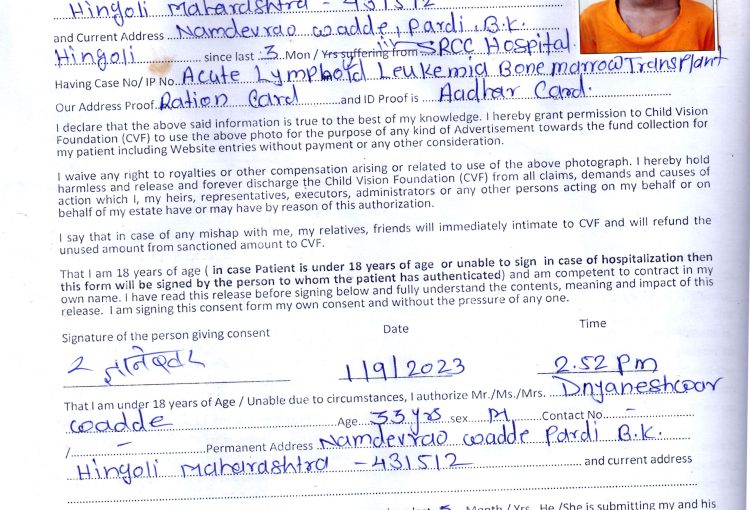 Hingoli Maharashtra - 431512
and Current Address Namdevrao wadde, Pardi B.K.
Hingoli since last 3 Mon / Yrs suffering from SRCC Hospital.
Having Case No/ IP No. Acute Lymphoid Leukemia Bonemarrow Transplant
Our Address Proof Ration Card and ID Proof is Aadhar Card.
I declare that the above said information is true to the best of my knowledge. I hereby grant permission to Child Vision
Foundation (CVF) to use the above photo for the purpose of any kind of Advertisement towards the fund collection for
my patient including Website entries without payment or any other consideration.
I waive any right to royalties or other compensation arising or related to use of the above photograph. I hereby hold
harmless and release and forever discharge the Child Vision Foundation (CVF) from all claims, demands and causes of
action which I, my heirs, representatives, executors, administrators or any other persons acting on my behalf or on
behalf of my estate have or may have by reason of this authorization.
I say that in case of any mishap with me, my relatives, friends will immediately intimate to CVF and will refund the
unused amount from sanctioned amount to CVF.
That I am 18 years of age ( in case Patient is under 18 years of age or unable to sign in case of hospitalization then
this form will be signed by the person to whom the patient has authenticated) and am competent to contract in my
own name. I have read this release before signing below and fully understand the contents, meaning and impact of this
release. I am signing this consent form my own consent and without the pressure of any one.
Signature of the person giving consent Date Time
1/9/2023 2.52 pm
That I am under 18 years of Age / Unable due to circumstances, I authorize Mr./Ms./Mrs. Dnyaneshwar
wadde Age 33 yrs sex M Contact No. -
/ - Permanent Address Namdevrao wadde Pardi B.K.
Hingoli Maharashtra - 431512 and current address
Month / Yrs. He /She is submitting my and his